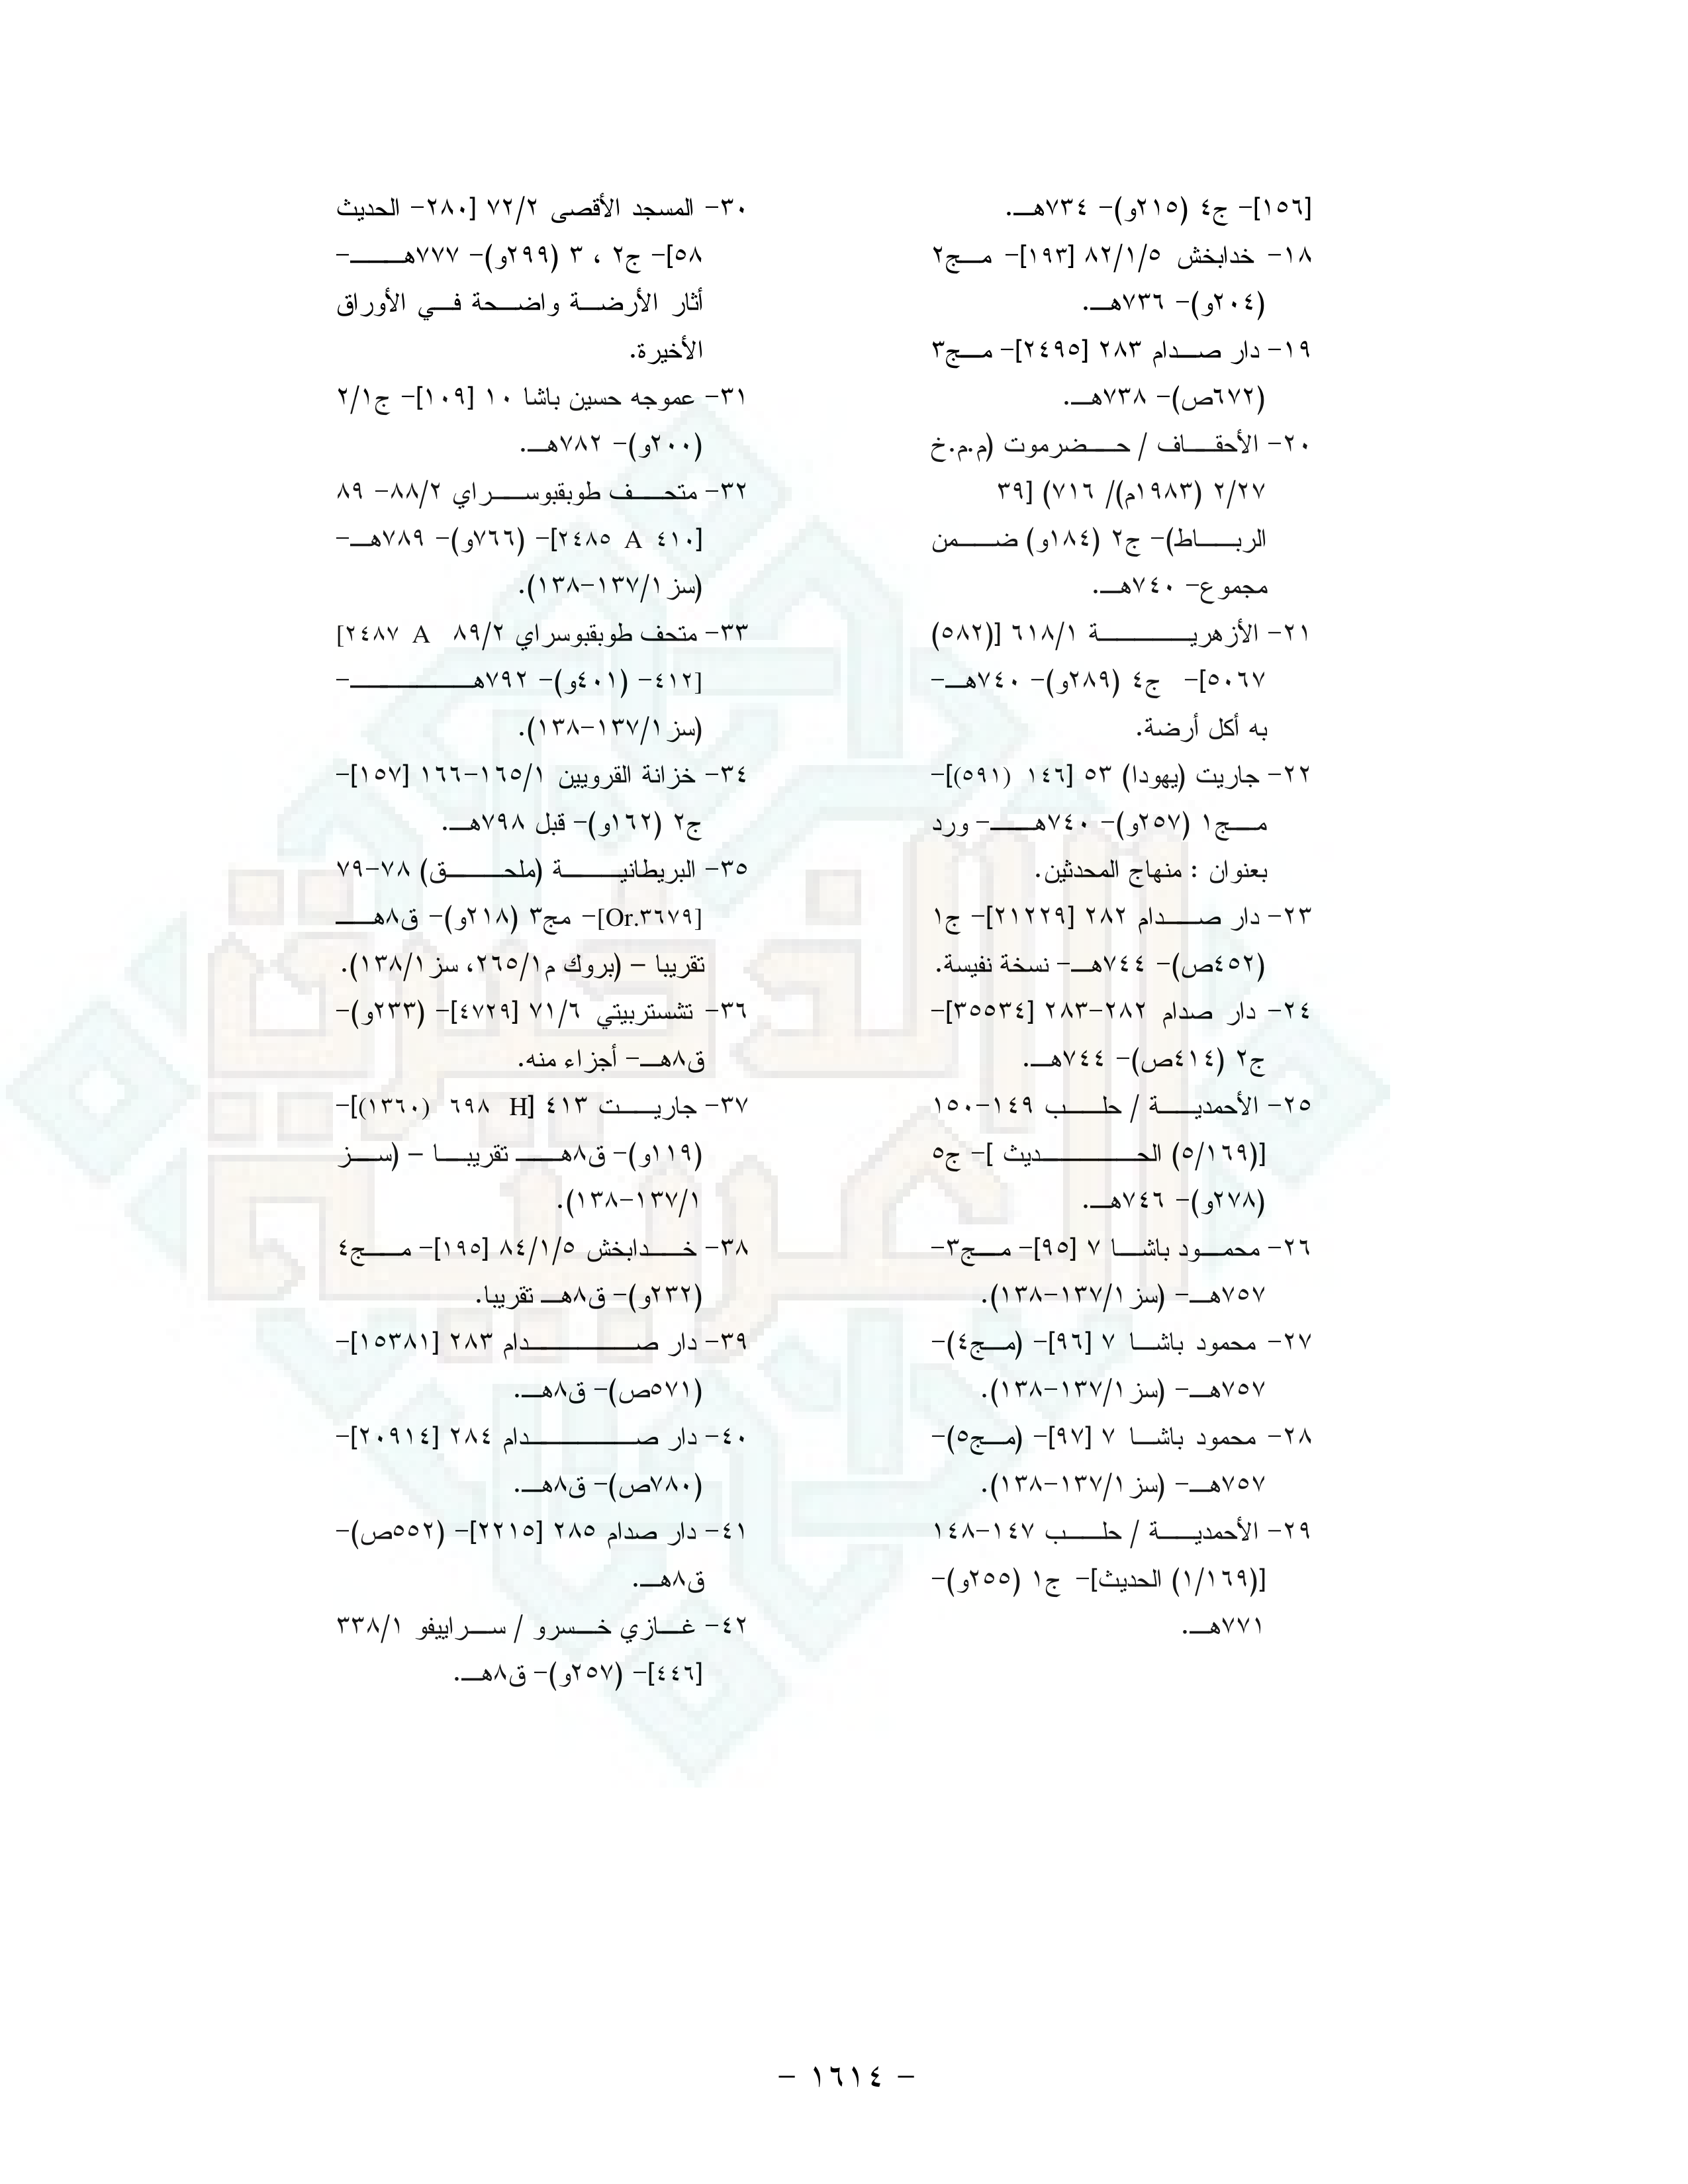 [١٥٦]- ج٤ (٢١٥و)- ٧٣٤هـ.
١٨- خدابخش ٨٢/١/٥ [١٩٣]- مج٢
(٢٠٤و)- ٧٣٦هـ.
١٩- دار صدام ٢٨٣ [٢٤٩٥]- مج٣
(٦٧٢ص)- ٧٣٨هـ.
٢٠- الأحقاف / حضرموت (م.م.خ
٢/٢٧ (١٩٨٣م)/ ٧١٦) [٣٩
الرباط)- ج٢ (١٨٤و) ضمن
مجموع- ٧٤٠هـ.
٢١- الأزهرية ٦١٨/١ [(٥٨٢)
٥٠٦٧]- ج٤ (٢٨٩و)- ٧٤٠هـ-
به أكل أرضة.
٢٢- جاريت (يهودا) ٥٣ [١٤٦ (٥٩١)]-
مج١ (٢٥٧و)- ٧٤٠هـ- ورد
بعنوان : منهاج المحدثين.
٢٣- دار صدام ٢٨٢ [٢١٢٢٩]- ج١
(٤٥٢ص)- ٧٤٤هـ- نسخة نفيسة.
٢٤- دار صدام ٢٨٢-٢٨٣ [٣٥٥٣٤]-
ج٢ (٤١٤ص)- ٧٤٤هـ.
٢٥- الأحمدية / حلب ١٤٩-١٥٠
[(٥/١٦٩) الحديث ]- ج٥
(٢٧٨و)- ٧٤٦هـ.
٢٦- محمود باشا ٧ [٩٥]- مج٣-
٧٥٧هـ- (سز ١٣٧/١-١٣٨).
٢٧- محمود باشا ٧ [٩٦]- (مج٤)-
٧٥٧هـ- (سز ١٣٧/١-١٣٨).
٢٨- محمود باشا ٧ [٩٧]- (مج٥)-
٧٥٧هـ- (سز ١٣٧/١-١٣٨).
٢٩- الأحمدية / حلب ١٤٧-١٤٨
[(١/١٦٩) الحديث]- ج١ (٢٥٥و)-
٧٧١هـ.
٣٠- المسجد الأقصى ٧٢/٢ [٢٨٠- الحديث
٥٨]- ج٢ ، ٣ (٢٩٩و)- ٧٧٧هـ-
أثار الأرضة واضحة في الأوراق
الأخيرة.
٣١- عموجه حسين باشا ١٠ [١٠٩]- ج٢/١
(٢٠٠و)- ٧٨٢هـ.
٣٢- متحف طوبقبوسراي ٨٨/٢- ٨٩
[٤١٠ A ٢٤٨٥]- (٧٦٦و)- ٧٨٩هـ-
(سز ١٣٧/١-١٣٨).
٣٣- متحف طوبقبوسراي ٨٩/٢ A ٢٤٨٧]
[٤١٢- (٤٠١و)- ٧٩٢هـ-
(سز ١٣٧/١-١٣٨).
٣٤- خزانة القرويين ١٦٥/١-١٦٦ [١٥٧]-
ج٢ (١٦٢و)- قبل ٧٩٨هـ.
٣٥- البريطانية (ملحق) ٧٨-٧٩
[Or.٣٦٧٩]- مج٣ (٢١٨و)- ق٨هـ
تقريبا – (بروك م٢٦٥/١، سز ١٣٨/١).
٣٦- تشستربيتي ٧١/٦ [٤٧٢٩]- (٢٣٣و)-
ق٨هـ- أجزاء منه.
٣٧- جاريت ٤١٣ [H ٦٩٨ (١٣٦٠)]-
(١١٩و)- ق٨هـ تقريبا – (سز
١٣٧/١-١٣٨).
٣٨- خدابخش ٨٤/١/٥ [١٩٥]- مج٤
(٢٣٢و)- ق٨هـ تقريبا.
٣٩- دار صدام ٢٨٣ [١٥٣٨١]-
(٥٧١ص)- ق٨هـ.
٤٠- دار صدام ٢٨٤ [٢٠٩١٤]-
(٧٨٠ص)- ق٨هـ.
٤١- دار صدام ٢٨٥ [٢٢١٥]- (٥٥٢ص)-
ق٨هـ.
٤٢- غازي خسرو / سراييفو ٣٣٨/١
[٤٤٦]- (٢٥٧و)- ق٨هـ.
- ١٦١٤ -
الذخيرة
العربية